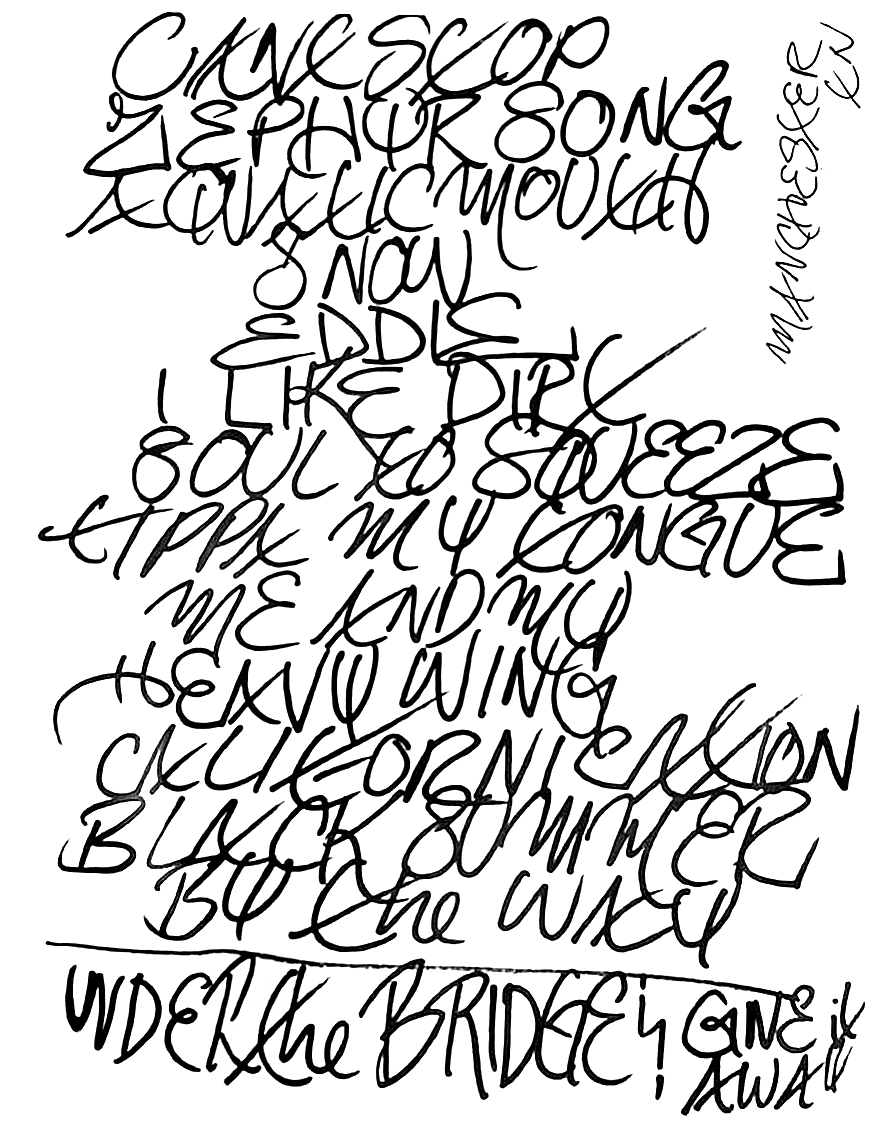 CANT STOP
ZEPHYR SONG
AQUATIC MOUTH
SNOW
EDDIE
I LIKE DIRT
SOUL TO SQUEEZE
TIPPA MY TONGUE
ME AND MY
HEAVY WING
CALIFORNICATION
BLACK SUMMER
BY the WAY
UNDER the BRIDGE
GIVE it
AWAY
MANCHESTER